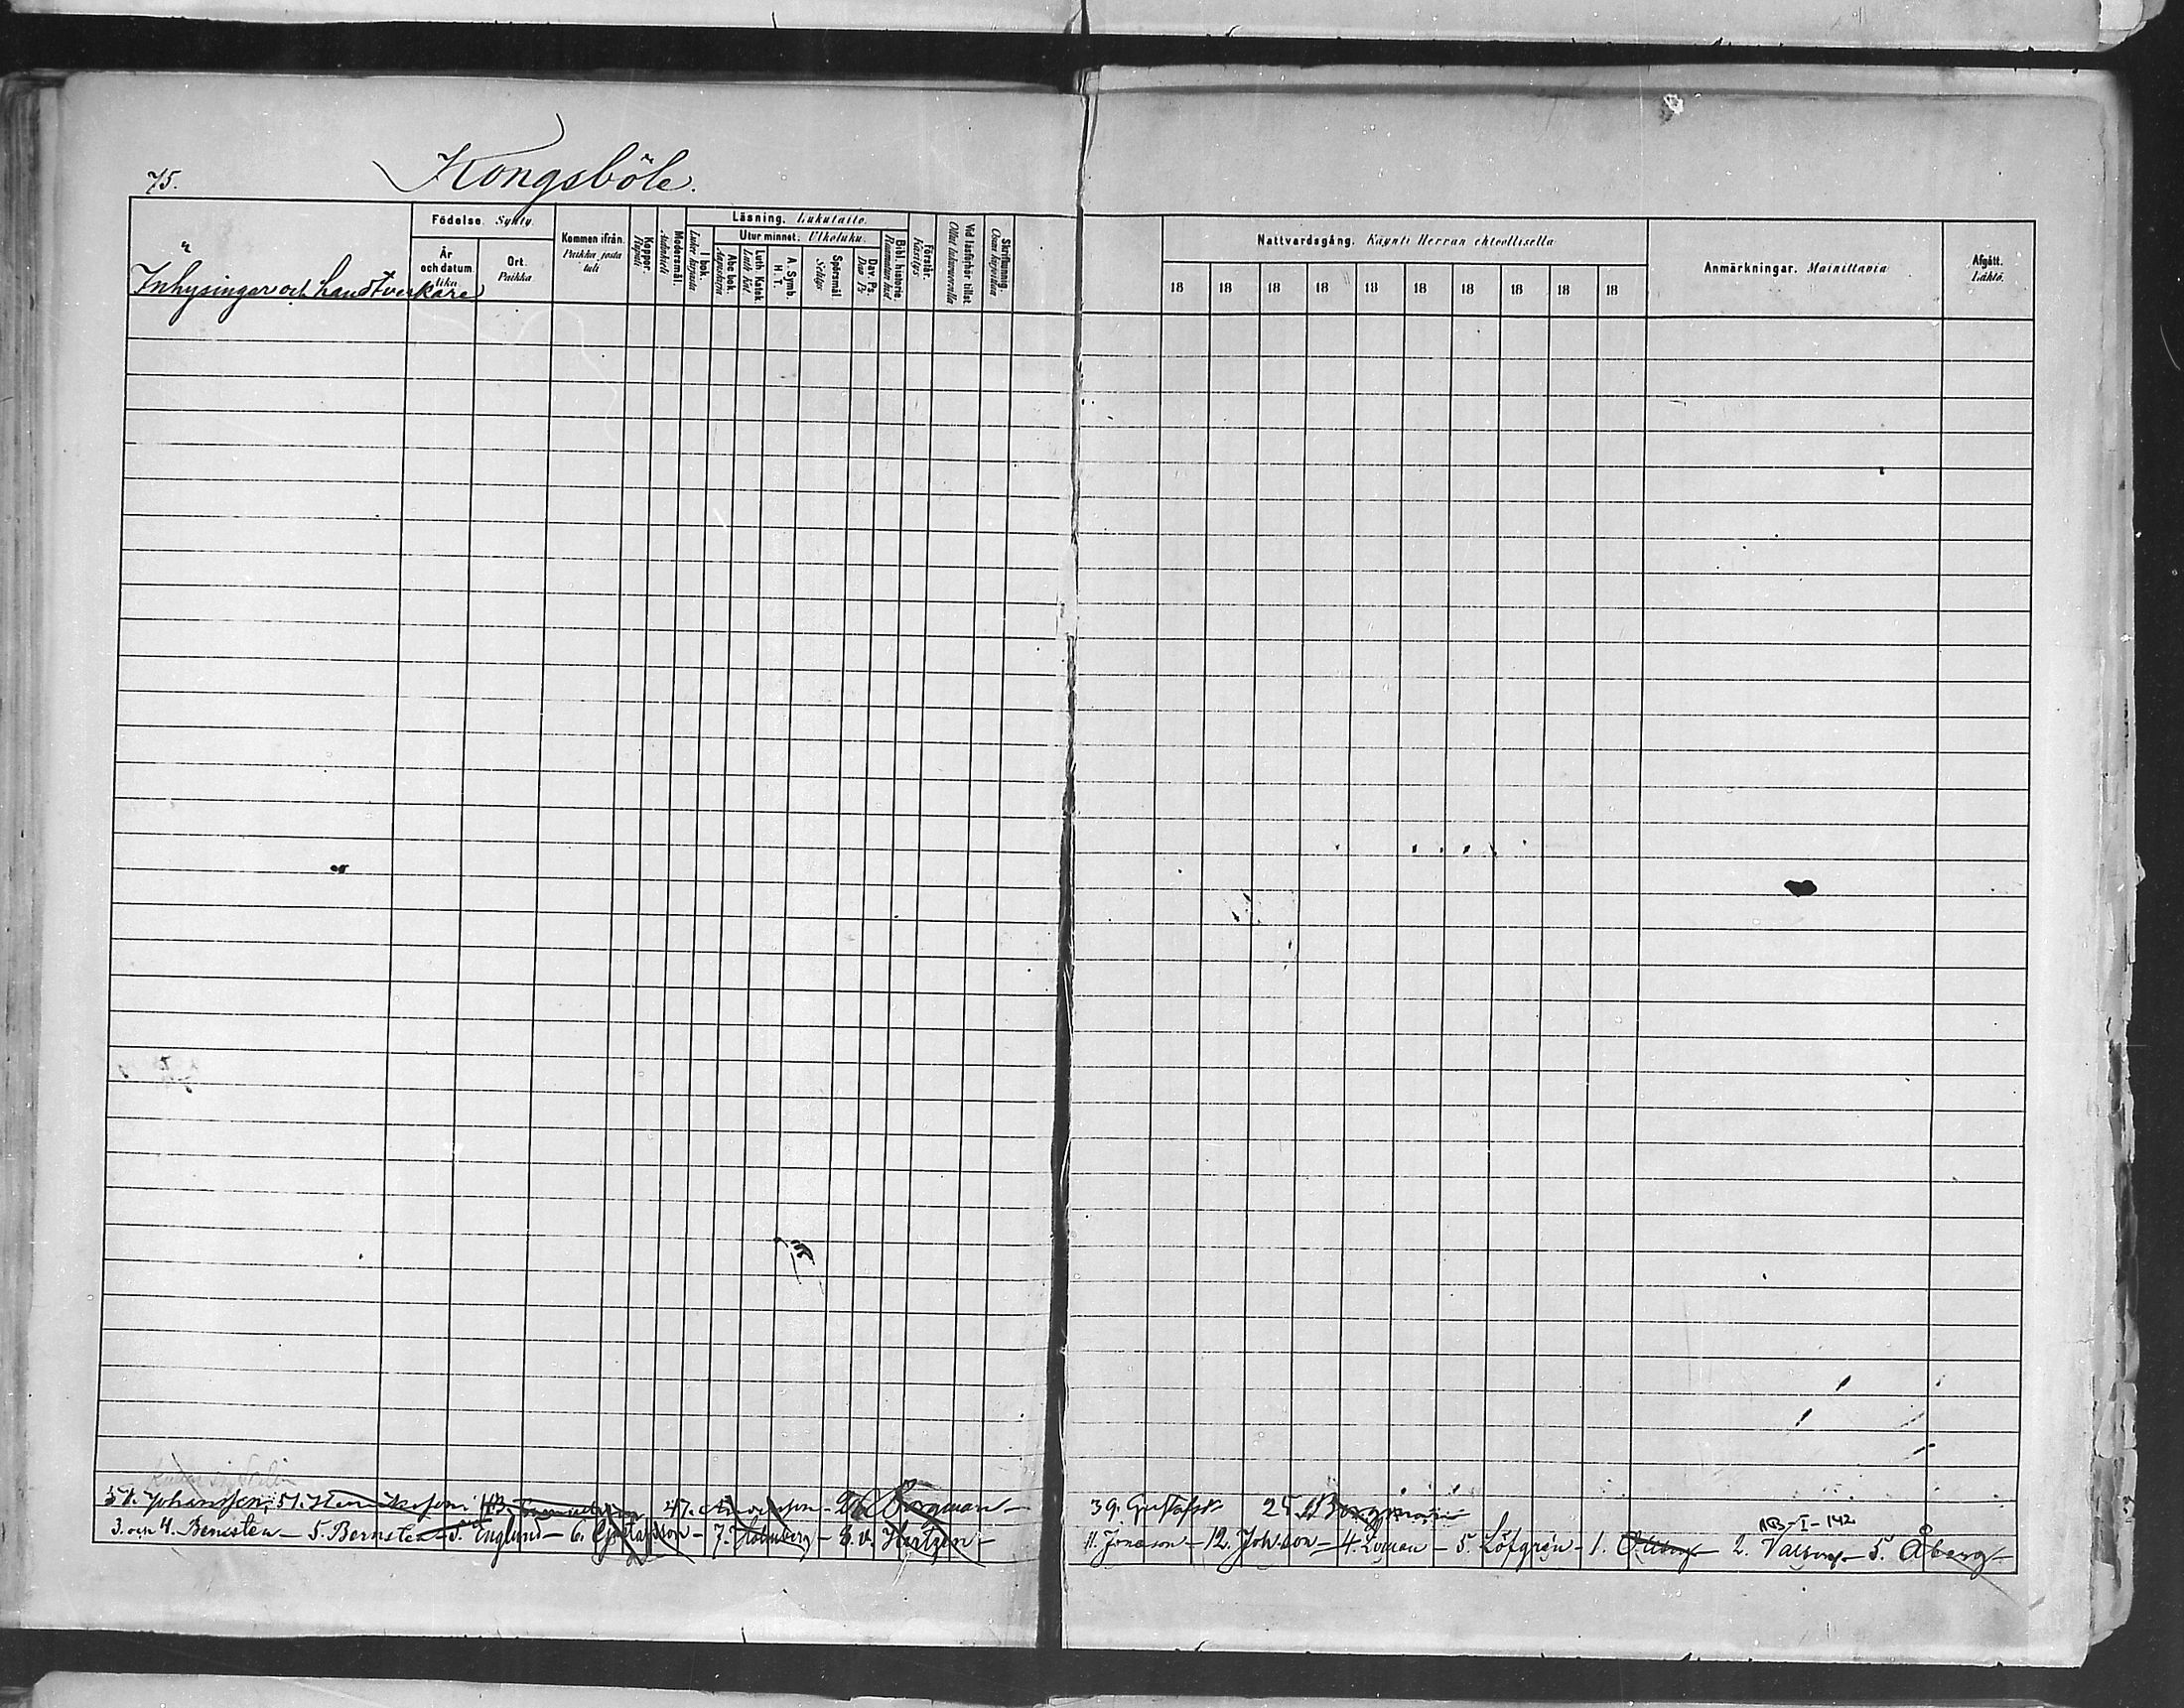 75.
Kongsböle.
Inhysingar och handtverkare
Födelse. Synty.
År och datum.
Ort. Paikka
Kommen ifrån. Paikka, josta tuli
Koppor. Rupuli
Modersmål. Äidinkieli
Läsning. Lukutaito.
I bok. Lukee kirjasta
Utur minnet. Ulkoluku.
Abc bok. Aapiskirja
Luth. Katek. Luth Kat.
A. Symb. H. T.
Spörsmål. Selitys
Dav. Ps. Dav Ps
Bibl. historie.
Förstår. Käsitys
Vid läsförhör tillst
Skrifkunnig. Osaa kirjoittaa
Nattvardsgång. Käynti Herran ehtoollisella
18 18 18 18 18 18 18 18 18 18
Anmärkningar. Mainittavia
Afgått. Lähtö.
51. Johansson, 51. Henriksson 47. 26 Borgman
3. och 4. Bernsten - 5. Bernsten - 5. Englund - 6. Gustafsson - 7. Holmberg - 8. v. Hertzen -
39. Gustafss 25. Borgman
NB - I - 142
11. Jonasson - 12. Johsson - 4. Loman - 5. Löfgrén - 1. 2. 5. Åberg